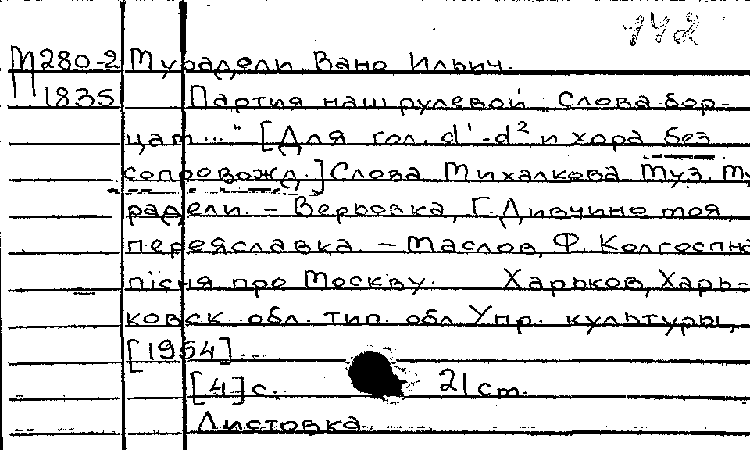 142
М280-2 Мурадели, Вано Ильич.
П1835 Партия наш рулевой. "Слова бор-
цам..." [Для гол. d¹-d² и хора без
сопровожд.] Слова Михалкова Муз. Му-
радели. – Верьовка, Г. Дивчино моя,
переяславка. – Маслов, Ф. Колгоспна
пісня про Москву. Харьков, Харь-
ковск. обл. тип. обл Упр. культуры,
[1954].
[4] с. 21 cm.
Листовка